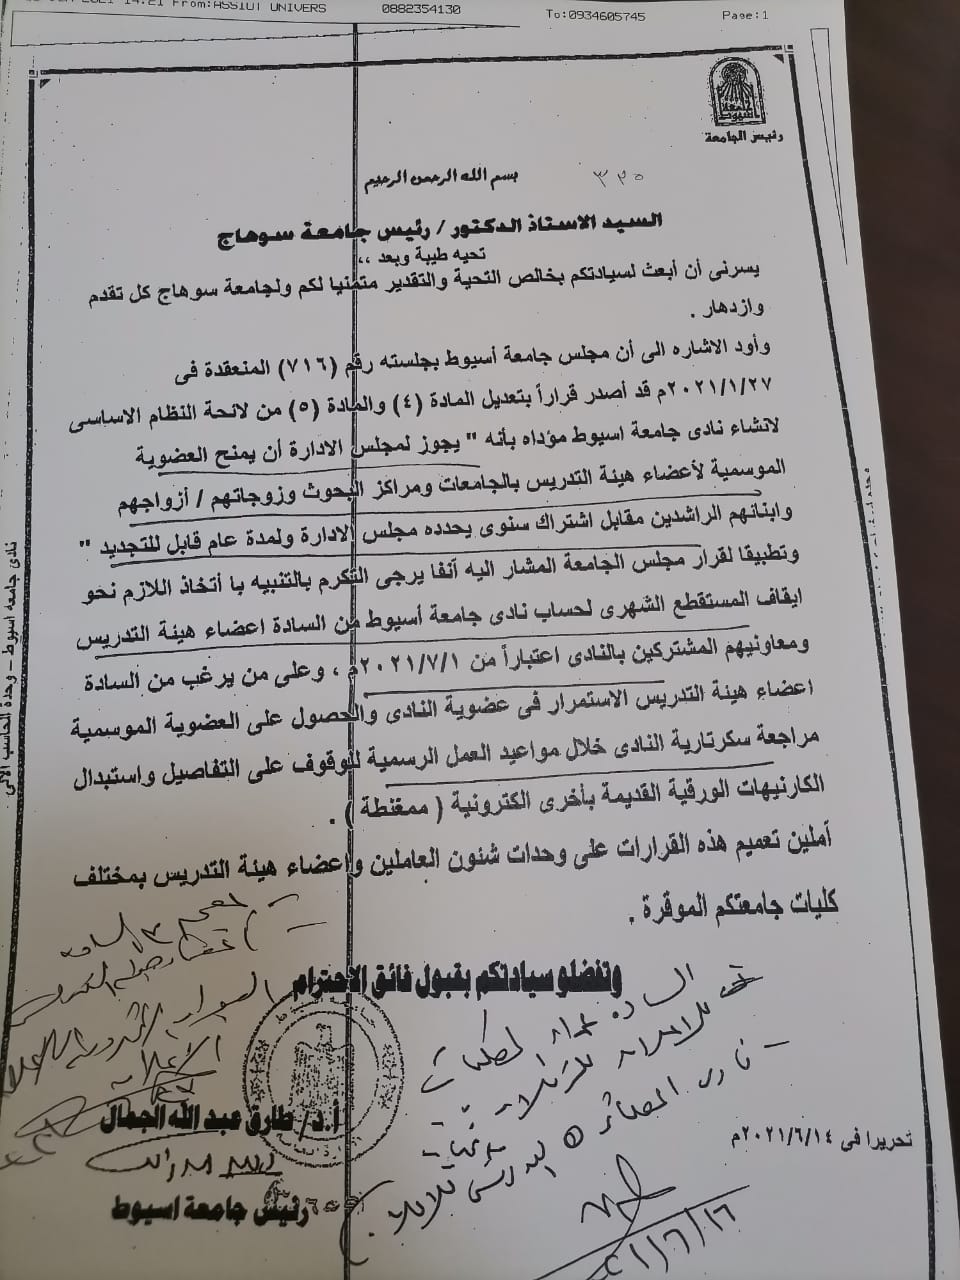 14:21 From:ASSIUT UNIVERS 0882354130 To:0934605745 Page:1
جامعة اسيوط
رئيس الجامعة
٣٢٥
بسم الله الرحمن الرحيم
السيد الاستاذ الدكتور / رئيس جامعة سوهاج
تحيه طيبة وبعد ،،
يسرنى أن أبعث لسيادتكم بخالص التحية والتقدير متمنيا لكم ولجامعة سوهاج كل تقدم
وازدهار .
وأود الاشاره الى أن مجلس جامعة أسيوط بجلسته رقم (٧١٦) المنعقدة فى
٢٠٢١/١/٢٧م قد أصدر قراراً بتعديل المادة (٤) والمادة (٥) من لائحة النظام الاساسى
لانشاء نادى جامعة اسيوط مؤداه بأنه " يجوز لمجلس الادارة أن يمنح العضوية
الموسمية لأعضاء هيئة التدريس بالجامعات ومراكز البحوث وزوجاتهم / أزواجهم
وابنائهم الراشدين مقابل اشتراك سنوى يحدده مجلس الادارة ولمدة عام قابل للتجديد "
وتطبيقا لقرار مجلس الجامعة المشار اليه آنفا يرجى التكرم بالتنبيه با أتخاذ اللازم نحو
ايقاف المستقطع الشهرى لحساب نادى جامعة أسيوط من السادة اعضاء هيئة التدريس
ومعاونيهم المشتركين بالنادى اعتباراً من ٢٠٢١/٧/١م ، وعلى من يرغب من السادة
اعضاء هيئة التدريس الاستمرار فى عضوية النادى والحصول على العضوية الموسمية
مراجعة سكرتارية النادى خلال مواعيد العمل الرسمية للوقوف على التفاصيل واستبدال
الكارنيهات الورقية القديمة بأخرى الكترونية ( ممغنطة ) .
آملين تعميم هذه القرارات على وحدات شئون العاملين واعضاء هيئة التدريس بمختلف
كليات جامعتكم الموقرة .
وتفضلو سيادتكم بقبول فائق الاحترام
السادة عمداء الكليات
أ.د/ طارق عبد الله الجمال
رئيس جامعة اسيوط
تحريرا فى ٢٠٢١/٦/١٤م
٢٠٢١/٦/١٦
نادى جامعه اسيوط – وحدة الحاسب الآلى